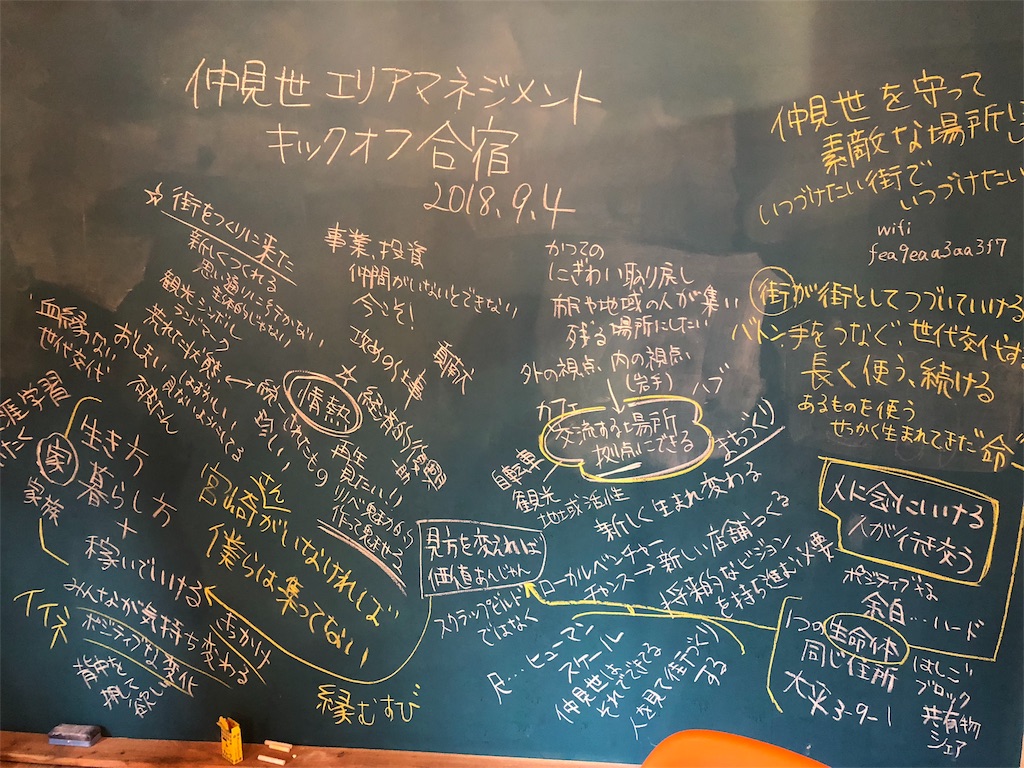 仲見世 エリアマネジメント
キックオフ合宿
2018.9.4
仲見世を守って
素敵な場所に
いつづけたい街で
いつづけたい
wifi
fea9eaa3aa3f7
☆街をつくりに来た
新しくつくれる
思い通りに行かない
主体的じゃない
観光シンボル
ランドマーク
荒れた状態
おしまい
不安だん
血縁のない
世代交代
事業、投資
仲間がいないとできない
今こそ!
攻めの仕事
☆
情熱
経済的
再生
見たい!!
作って来ませう
かつての
にぎわい取り戻し
市民や地域の人が集い
残る場所にしたい
外の視点、内の視点
ハブ
カフェ
交流する場所
拠点にできる
まちづくり
自転車
観光
地域活性
新しく生まれ変わる
ローカルベンチャー
チャンス→新しい店舗つくる
将来的なビジョン
を持ち進まい必要
街が街としてつづいていける
バトン手をつなぐ、世代交代する
長く使う、続ける
あるものを使う
せっかく生まれてきた命
人に会いにいける
人が行き交う
ポジティブな
余白…ハード
1つの生命体
同じ住所
大平3-9-1
はしご
ブロック
共有物
シェア
学習
家
家族
生き方
暮らし方
+
稼いでいける
みんなが気持ち変わる
ポジティブな変化
背中を
押して欲しい
イイネ
きっかけ
宮崎さんがいなければ
僕らは集ってない
縁むすび
見方を変えれば
価値あんじゃん
スクラップビルド
ではなく
足…ヒューマン
スケール
仲見世はできてる
それができてる
人を見て街づくり
する